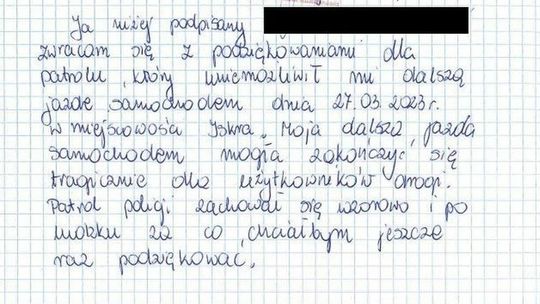 Ja niżej podpisany
zwracam się z podziękowaniami dla
patrolu, który uniemożliwił mi dalszą
jazdę samochodem dnia 27.03.2023 r.
w miejscowości Iskra. Moja dalsza jazda
samochodem mogła zakończyć się
tragicznie dla użytkowników drogi.
Patrol policji zachował się wzorowo i po
ludzku za co chciałbym jeszcze
raz podziękować.